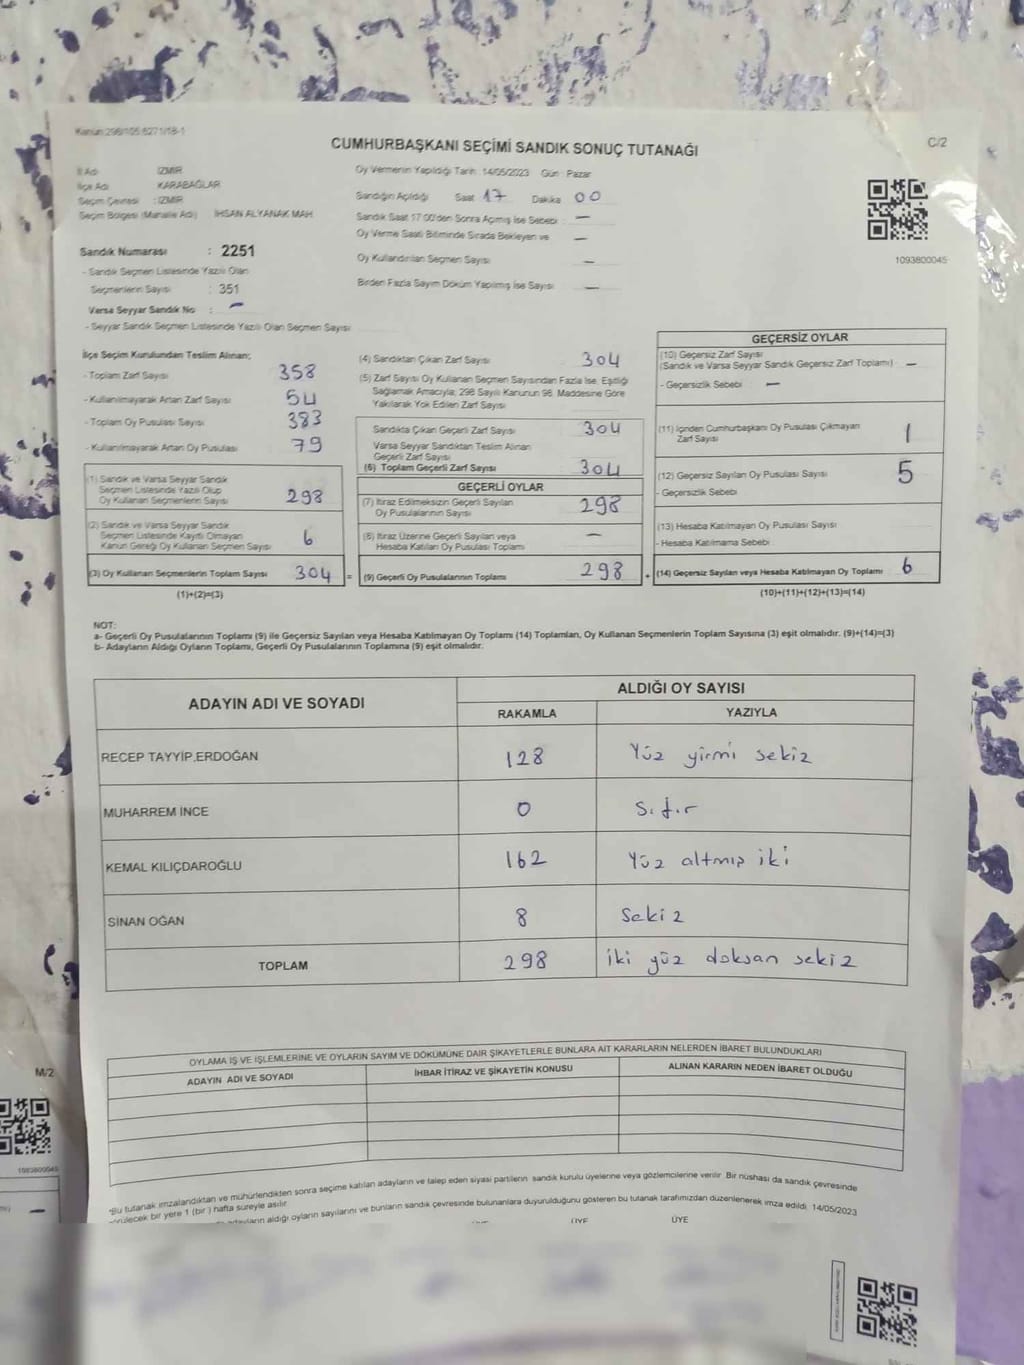 Kanun:298/105,6271/18-1
C/2
CUMHURBAŞKANI SEÇİMİ SANDIK SONUÇ TUTANAĞI
İl Adı : İZMİR
İlçe Adı : KARABAĞLAR
Seçim Çevresi : İZMİR
Seçim Bölgesi (Mahalle Adı) : İHSAN ALYANAK MAH.
Oy Vermenin Yapıldığı Tarih: 14/05/2023 Gün : Pazar
Sandığın Açıldığı Saat 17 Dakika 00
Sandık Saat 17:00'den Sonra Açılmış İse Sebebi : —
Oy Verme Saati Bitiminde Sırada Bekleyen ve —
Oy Kullandırılan Seçmen Sayısı —
Birden Fazla Sayım Döküm Yapılmış İse Sayısı —
1093800045
Sandık Numarası : 2251
- Sandık Seçmen Listesinde Yazılı Olan
Seçmenlerin Sayısı : 351
Varsa Seyyar Sandık No : —
- Seyyar Sandık Seçmen Listesinde Yazılı Olan Seçmen Sayısı
İlçe Seçim Kurulundan Teslim Alınan;
- Toplam Zarf Sayısı 358
- Kullanılmayarak Artan Zarf Sayısı 54
- Toplam Oy Pusulası Sayısı 383
- Kullanılmayarak Artan Oy Pusulası 79
(1) Sandık ve Varsa Seyyar Sandık
Seçmen Listesinde Yazılı Olup
Oy Kullanan Seçmenlerin Sayısı 298
(2) Sandık ve Varsa Seyyar Sandık
Seçmen Listesinde Kayıtlı Olmayan
Kanun Gereği Oy Kullanan Seçmen Sayısı 6
(3) Oy Kullanan Seçmenlerin Toplam Sayısı 304 =
(1)+(2)=(3)
(4) Sandıktan Çıkan Zarf Sayısı 304
(5) Zarf Sayısı Oy Kullanan Seçmen Sayısından Fazla İse, Eşitliği
Sağlamak Amacıyla; 298 Sayılı Kanunun 98. Maddesine Göre
Yakılarak Yok Edilen Zarf Sayısı
Sandıkta Çıkan Geçerli Zarf Sayısı 304
Varsa Seyyar Sandıktan Teslim Alınan
Geçerli Zarf Sayısı
(6) Toplam Geçerli Zarf Sayısı 304
GEÇERLİ OYLAR
(7) İtiraz Edilmeksizin Geçerli Sayılan
Oy Pusulalarının Sayısı 298
(8) İtiraz Üzerine Geçerli Sayılan veya
Hesaba Katılan Oy Pusulası Toplamı —
(9) Geçerli Oy Pusulalarının Toplamı 298 +
GEÇERSİZ OYLAR
(10) Geçersiz Zarf Sayısı
(Sandık ve Varsa Seyyar Sandık Geçersiz Zarf Toplamı) —
- Geçersizlik Sebebi —
(11) İçinden Cumhurbaşkanı Oy Pusulası Çıkmayan
Zarf Sayısı 1
(12) Geçersiz Sayılan Oy Pusulası Sayısı 5
- Geçersizlik Sebebi
(13) Hesaba Katılmayan Oy Pusulası Sayısı
- Hesaba Katılmama Sebebi
(14) Geçersiz Sayılan veya Hesaba Katılmayan Oy Toplamı 6
(10)+(11)+(12)+(13)=(14)
NOT:
a- Geçerli Oy Pusulalarının Toplamı (9) ile Geçersiz Sayılan veya Hesaba Katılmayan Oy Toplamı (14) Toplamları, Oy Kullanan Seçmenlerin Toplam Sayısına (3) eşit olmalıdır. (9)+(14)=(3)
b- Adayların Aldığı Oyların Toplamı, Geçerli Oy Pusulalarının Toplamına (9) eşit olmalıdır.
ADAYIN ADI VE SOYADI
ALDIĞI OY SAYISI
RAKAMLA YAZIYLA
RECEP TAYYİP ERDOĞAN 128 Yüz yirmi sekiz
MUHARREM İNCE 0 Sıfır
KEMAL KILIÇDAROĞLU 162 Yüz altmış iki
SİNAN OĞAN 8 Sekiz
TOPLAM 298 iki yüz doksan sekiz
OYLAMA İŞ VE İŞLEMLERİNE VE OYLARIN SAYIM VE DÖKÜMÜNE DAİR ŞİKAYETLERLE BUNLARA AİT KARARLARIN NELERDEN İBARET BULUNDUKLARI
ADAYIN ADI VE SOYADI İHBAR İTİRAZ VE ŞİKAYETİN KONUSU ALINAN KARARIN NEDEN İBARET OLDUĞU
M/2
1093800045
*Bu tutanak imzalandıktan ve mühürlendikten sonra seçime katılan adayların ve talep eden siyasi partilerin sandık kurulu üyelerine veya gözlemcilerine verilir. Bir nüshası da sandık çevresinde
görülecek bir yere 1 (bir) hafta süreyle asılır.
adayların aldığı oyların sayılarını ve bunların sandık çevresinde bulunanlara duyurulduğunu gösteren bu tutanak tarafımızdan düzenlenerek imza edildi. 14/05/2023
ÜYE ÜYE ÜYE